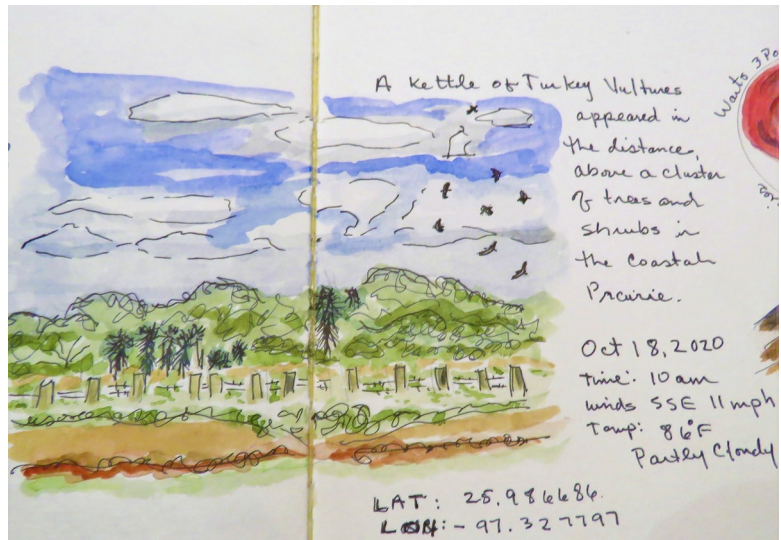 A Kettle of Turkey Vultures
appeared in
the distance,
above a cluster
of trees and
shrubs in
the Coastal
Prairie.
Oct 18, 2020
Time: 10 am
winds SSE 11 mph
Temp: 86°F
Partly Cloudy
LAT: 25.986686.
LON: -97.327797